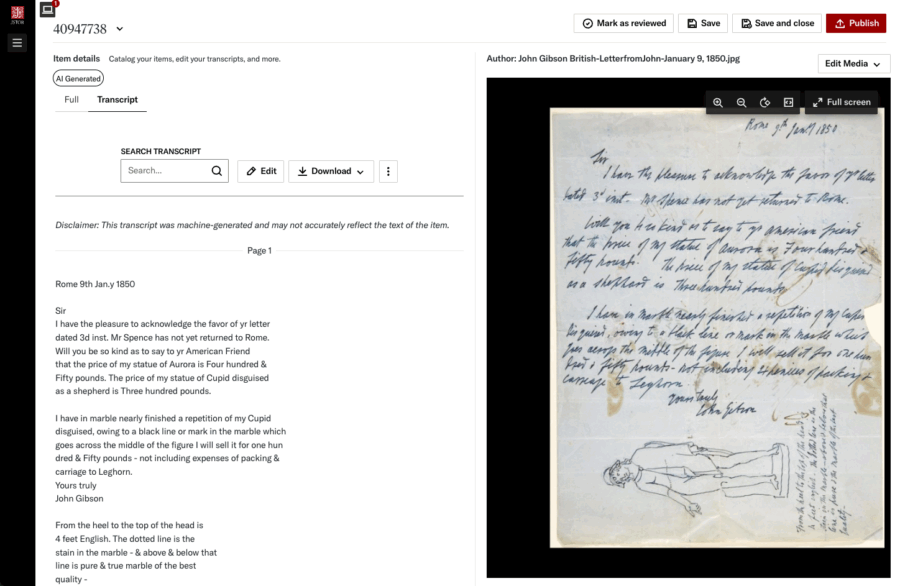 JSTOR
1
40947738
Mark as reviewed
Save
Save and close
Publish
Item details
Catalog your items, edit your transcripts, and more.
AI Generated
Full
Transcript
SEARCH TRANSCRIPT
Search...
Edit
Download
Disclaimer: This transcript was machine-generated and may not accurately reflect the text of the item.
Page 1
Rome 9th Jan.y 1850
Sir
I have the pleasure to acknowledge the favor of yr letter
dated 3d inst. Mr Spence has not yet returned to Rome.
Will you be so kind as to say to yr American Friend
that the price of my statue of Aurora is Four hundred &
Fifty pounds. The price of my statue of Cupid disguised
as a shepherd is Three hundred pounds.
I have in marble nearly finished a repetition of my Cupid
disguised, owing to a black line or mark in the marble which
goes across the middle of the figure I will sell it for one hun
dred & Fifty pounds - not including expenses of packing &
carriage to Leghorn.
Yours truly
John Gibson
From the heel to the top of the head is
4 feet English. The dotted line is the
stain in the marble - & above & below that
line is pure & true marble of the best
quality -
Author: John Gibson British-LetterfromJohn-January 9, 1850.jpg
Edit Media
Full screen
Rome 9th Jany 1850
Sir
I have the pleasure to acknowledge the favor of yr letter
dated 3d inst. Mr Spence has not yet returned to Rome.
Will you be so kind as to say to yr American friend
that the price of my statue of Aurora is Four hundred &
fifty pounds. The price of my statue of Cupid disguised
as a shepherd is Three hundred pounds.
I have in marble nearly finished a repetition of my Cupid
disguised, owing to a black line or mark in the marble which
goes across the middle of the figure I will sell it for one hun
dred & fifty pounds - not including expences of packing &
carriage to Leghorn.
yours truly
John Gibson